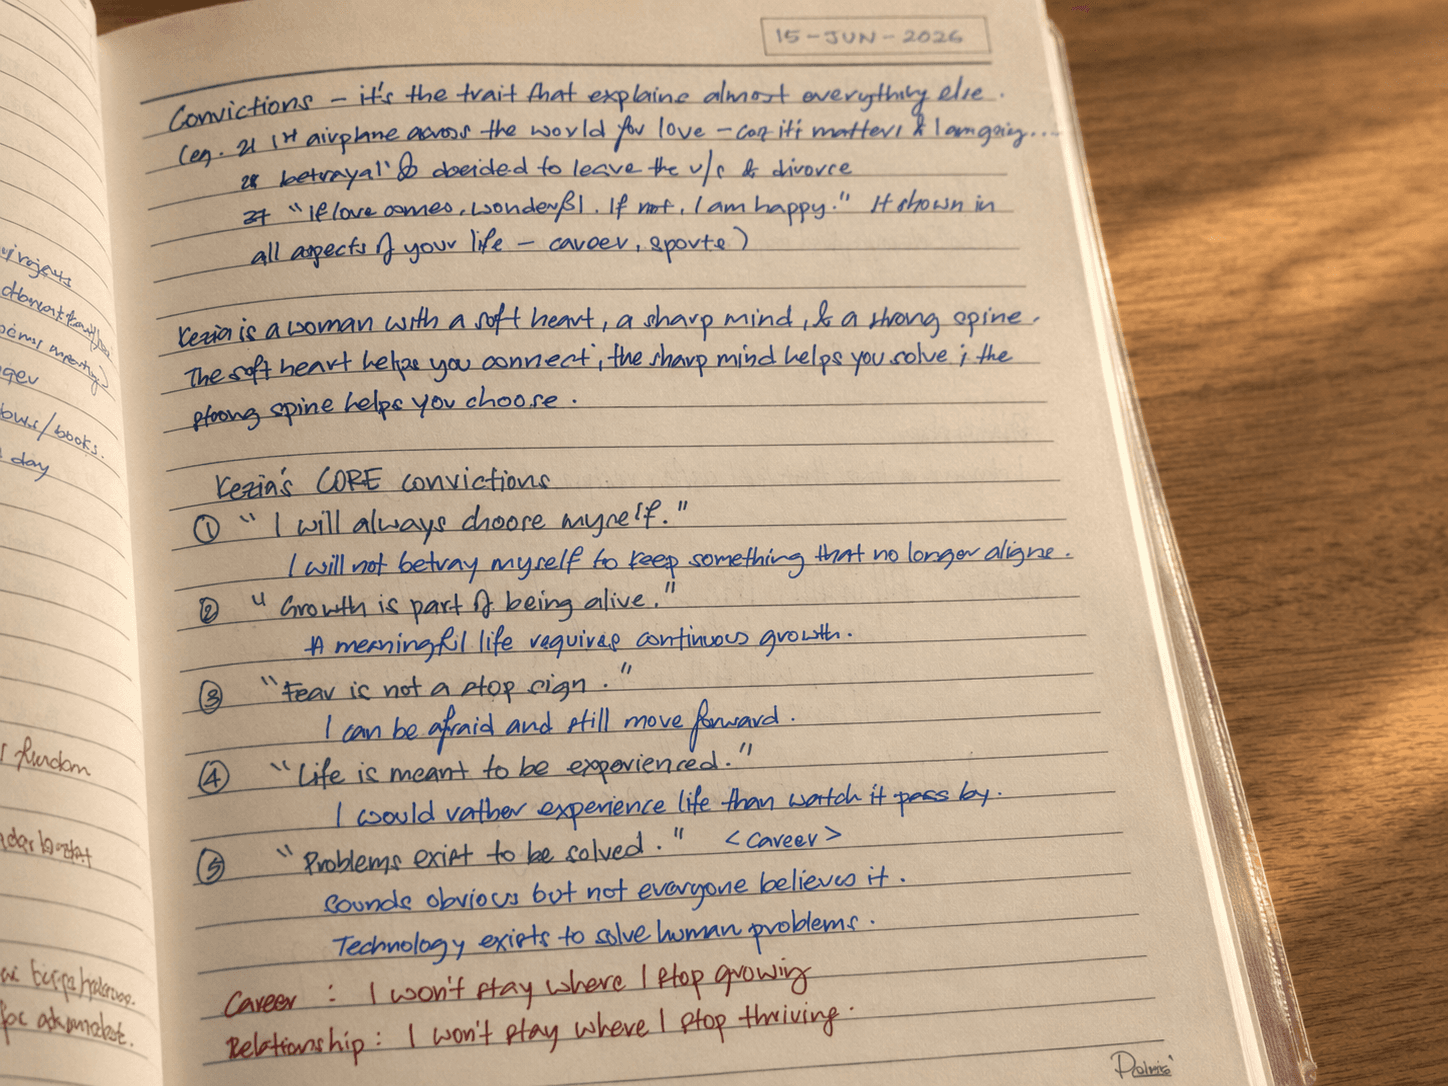 15-JUN-2026
Convictions - it's the trait that explains almost everything else.
(eg. 21 1st airplane across the world for love - coz it's matters & I am going...
28 betrayal & decided to leave the r/s & divorce
37 "If love comes, wonderful. If not, I am happy." It shown in
all aspects of your life - career, sports)
Kezia is a woman with a soft heart, a sharp mind, & a strong spine.
The soft heart helps you connect; the sharp mind helps you solve; the
strong spine helps you choose.
Kezia's CORE convictions
① "I will always choose myself."
I will not betray myself to keep something that no longer aligns.
② "Growth is part of being alive."
A meaningful life requires continuous growth.
③ "Fear is not a stop sign."
I can be afraid and still move forward.
④ "Life is meant to be experienced."
I would rather experience life than watch it pass by.
⑤ "Problems exist to be solved." <career>
Sounds obvious but not everyone believes it.
Technology exists to solve human problems.
Career : I won't stay where I stop growing
Relationship : I won't stay where I stop thriving.
projects
meaning)
/books.
day